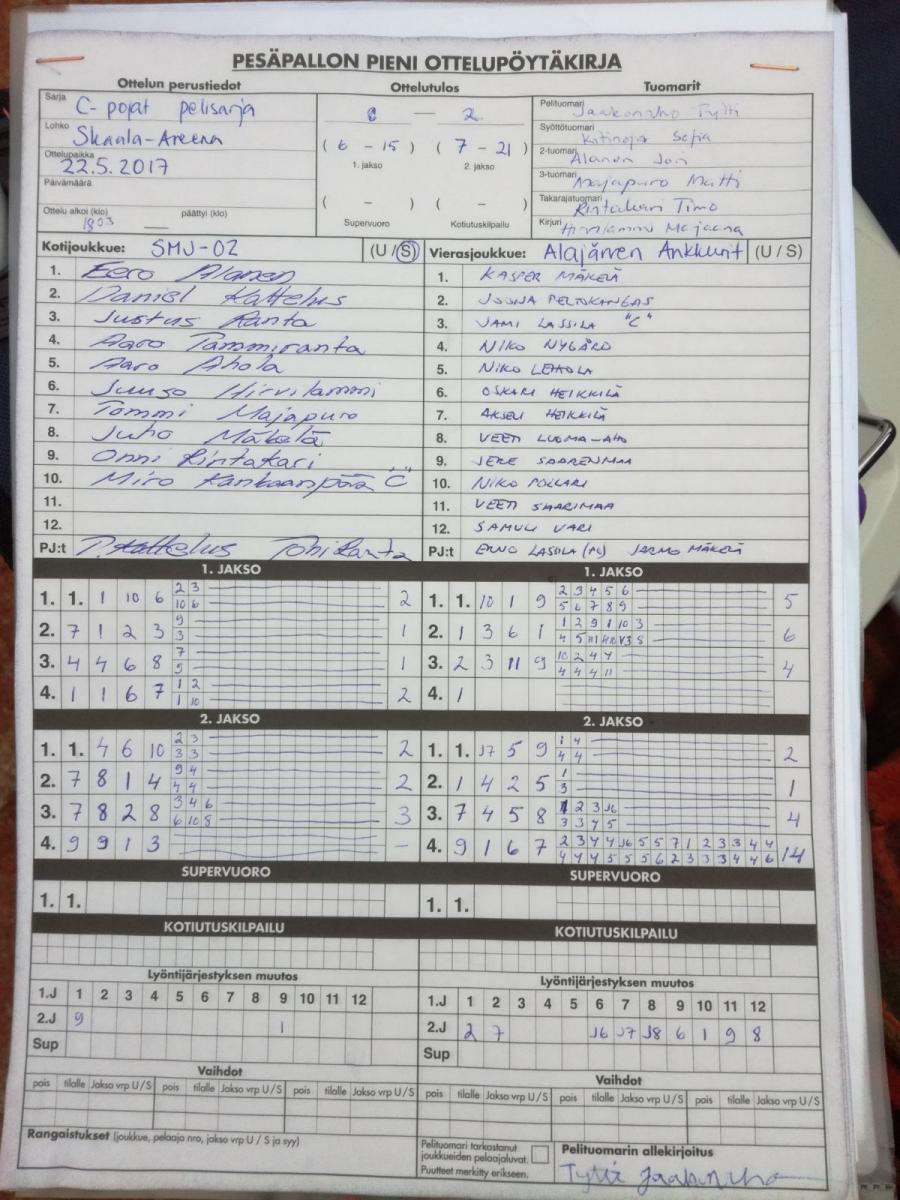 PESÄPALLON PIENI OTTELUPÖYTÄKIRJA
Ottelun perustiedot
Sarja
C-pojat pelisarja
Lohko
Skaala-Areena
Ottelupaikka
22.5.2017
Päivämäärä
Ottelu alkoi (klo) päättyi (klo)
1803
Ottelutulos
0 — 2
( 6 - 15 ) ( 7 - 21 )
1. jakso 2. jakso
( - ) ( - )
Supervuoro Kotiutuskilpailu
Tuomarit
Pelituomari
Tytti
Syöttötuomari
Kitinoja Sofia
2-tuomari
Alanen Joni
3-tuomari
Majapuro Matti
Takarajatuomari
Rintakari Timo
Kirjuri
Hirvilammi Marjaana
Kotijoukkue: SMJ-02 (U / S)
1. Eero Alanen
2. Daniel Kattelus
3. Justus Ranta
4. Aaro Tammiranta
5. Aaro Ahola
6. Juuso Hirvilammi
7. Tommi Majapuro
8. Juho Mäkelä
9. Onni Rintakari
10. Miro Kankaanpää "C"
11.
12.
PJ:t T. Kattelus Toni Ranta
Vierasjoukkue: Alajärven Ankkurit (U / S)
1. KASPER MÄKELÄ
2. JOONA PELTOKANGAS
3. JAMI LASSILA "C"
4. NIKO NYGÅRD
5. NIKO LEHTOLA
6. OSKARI HEIKKILÄ
7. AKSELI HEIKKILÄ
8. VEETI LUOMA-AHO
9. JERE SAARENMAA
10. NIKO POLLARI
11. VEETI SAARIMAA
12. SAMULI VARI
PJ:t ERNO LASSILA (PJ) JARMO MÄKELÄ
1. JAKSO
1. 1. 1 10 6 2 3 2
10 6
2. 7 1 2 3 9 1
3
3. 4 4 6 8 7 1
5
4. 1 1 6 7 1 2 2
1 10
1. JAKSO
1. 1. 10 1 9 2 3 4 5 6 5
5 6 7 8 9
2. 1 3 6 1 1 2 9 1 10 3 6
3. 2 3 11 9 10 2 4 4 4
4 4 4 11
4. 1
2. JAKSO
1. 1. 4 6 10 2 3 2
3 3
2. 7 8 1 4 9 4 2
4 4
3. 7 8 2 8 3 4 6 3
6 10 8
4. 9 9 1 3 –
2. JAKSO
1. 1. J7 5 9 1 4 2
4 4
2. 1 4 2 5 1 1
3
3. 7 4 5 8 1 2 3 J6 4
3 3 4 5
4. 9 1 6 7 2 3 4 4 J6 5 5 7 1 2 3 3 4 4 14
4 4 4 5 5 5 6 2 3 3 3 4 4 6
SUPERVUORO
1. 1.
SUPERVUORO
1. 1.
KOTIUTUSKILPAILU
KOTIUTUSKILPAILU
Lyöntijärjestyksen muutos
1.J 1 2 3 4 5 6 7 8 9 10 11 12
2.J 9 1
Sup
Lyöntijärjestyksen muutos
1.J 1 2 3 4 5 6 7 8 9 10 11 12
2.J 2 7 J6 J7 J8 6 1 9 8
Sup
Vaihdot
pois tilalle Jakso vrp U / S pois tilalle Jakso vrp U / S pois tilalle Jakso vrp U / S
Vaihdot
pois tilalle Jakso vrp U / S pois tilalle Jakso vrp U / S pois tilalle Jakso vrp U / S
Rangaistukset (joukkue, pelaaja nro, jakso vrp U / S ja syy)
Pelituomari tarkastanut
joukkueiden pelaajaluvat.
Puutteet merkitty erikseen.
Pelituomarin allekirjoitus
Tytti